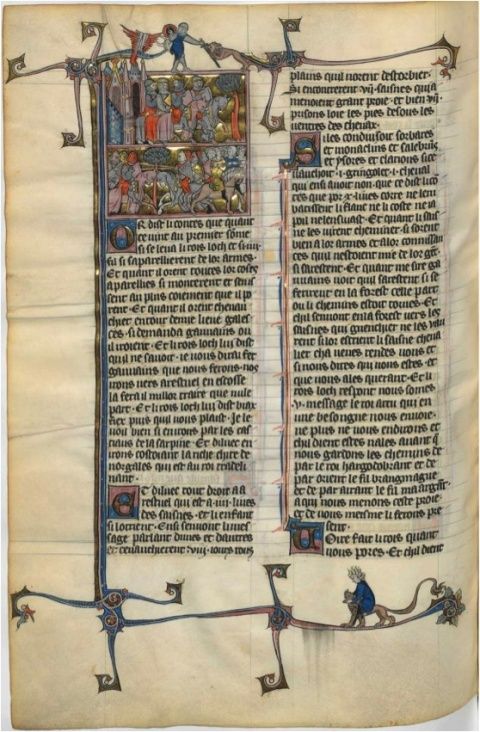 Or dist li contes que quant
ce vint au premier some
si se leva li rois loth et si .iiii.
fil si sapareillierent de lor armes.
Et quant il orent toutes lor coses
aparellies si monterent et
sent au plus coiement que il po
rent. Et quant il orent
chiet encour demie lieue gales
ces. si demanda gauuains ou
il iroient. Et li rois loth lui dist
quil ne savoit. ie vous dirai fet
gauuains que nous ferons. nos
irons vers arestuel en escosse
la fera il millor traire que nule
part. Et li rois loth lui dist biax
fiex puis quil vous plaist. Je le
voil bien si en irons par les
de la sarpine. Et
irons costoiant la riche cite de
norgales qui est au roi tradeli
nant.
Et diluec tout droit a a
restuel qui est a .iiii. liues
des saisnes. et li enfant
si lotrient. Ensi sen vont
sage parlant dunes et dautres
et cevauchierent .viii. iours tous
plains quil norent destorbier.
Si encontrerent .vii. saisnes qui
menoient grant proie. et bien .vii.
prisons loie les pies desous les
ventres des chevax.
Si les conduisoit sorbares
et monaclins et salebruis
et ysores et clarions. si ce
vauchoit .i. gringolet .i. cheval
qui ensi avoit non. que ce dist li co
tes que por .x. liues corre ne len
batissent li flanc ne li coste ne
poil ne len suast. Et quant li sais
ne les virent cheminer. si sorent
bien a lor armes et a lor connissan
ces quil nestoient mie de lor gent
si sarestent. Et quant me sire ga
uuains voit quil sarestent si se
ferirent en la forest cele part
ou li chemins estoit tornes. Et
chil sen vont en la forest vers les
saisnes qui guenchier ne les vau
rent si lor escrient li saisne cheva
lier cha venes rendes vous et
si nous dites qui vous estes. et
que vous ales querant. Et li
rois loth respont nous somes
.v. message le roi artu qui en
une besongne nous envoie.
ne plus ne vous en dirons et
chil dient estes nales avant que
nous gardons les chemins de
par le roi hargodabrant et de
par orient le fil brangmague
et de par
a qui nous menons ceste proie
et de vous meisme li ferons pre
sent.
Voire fait li rois quant
vous pores. Et chil dient